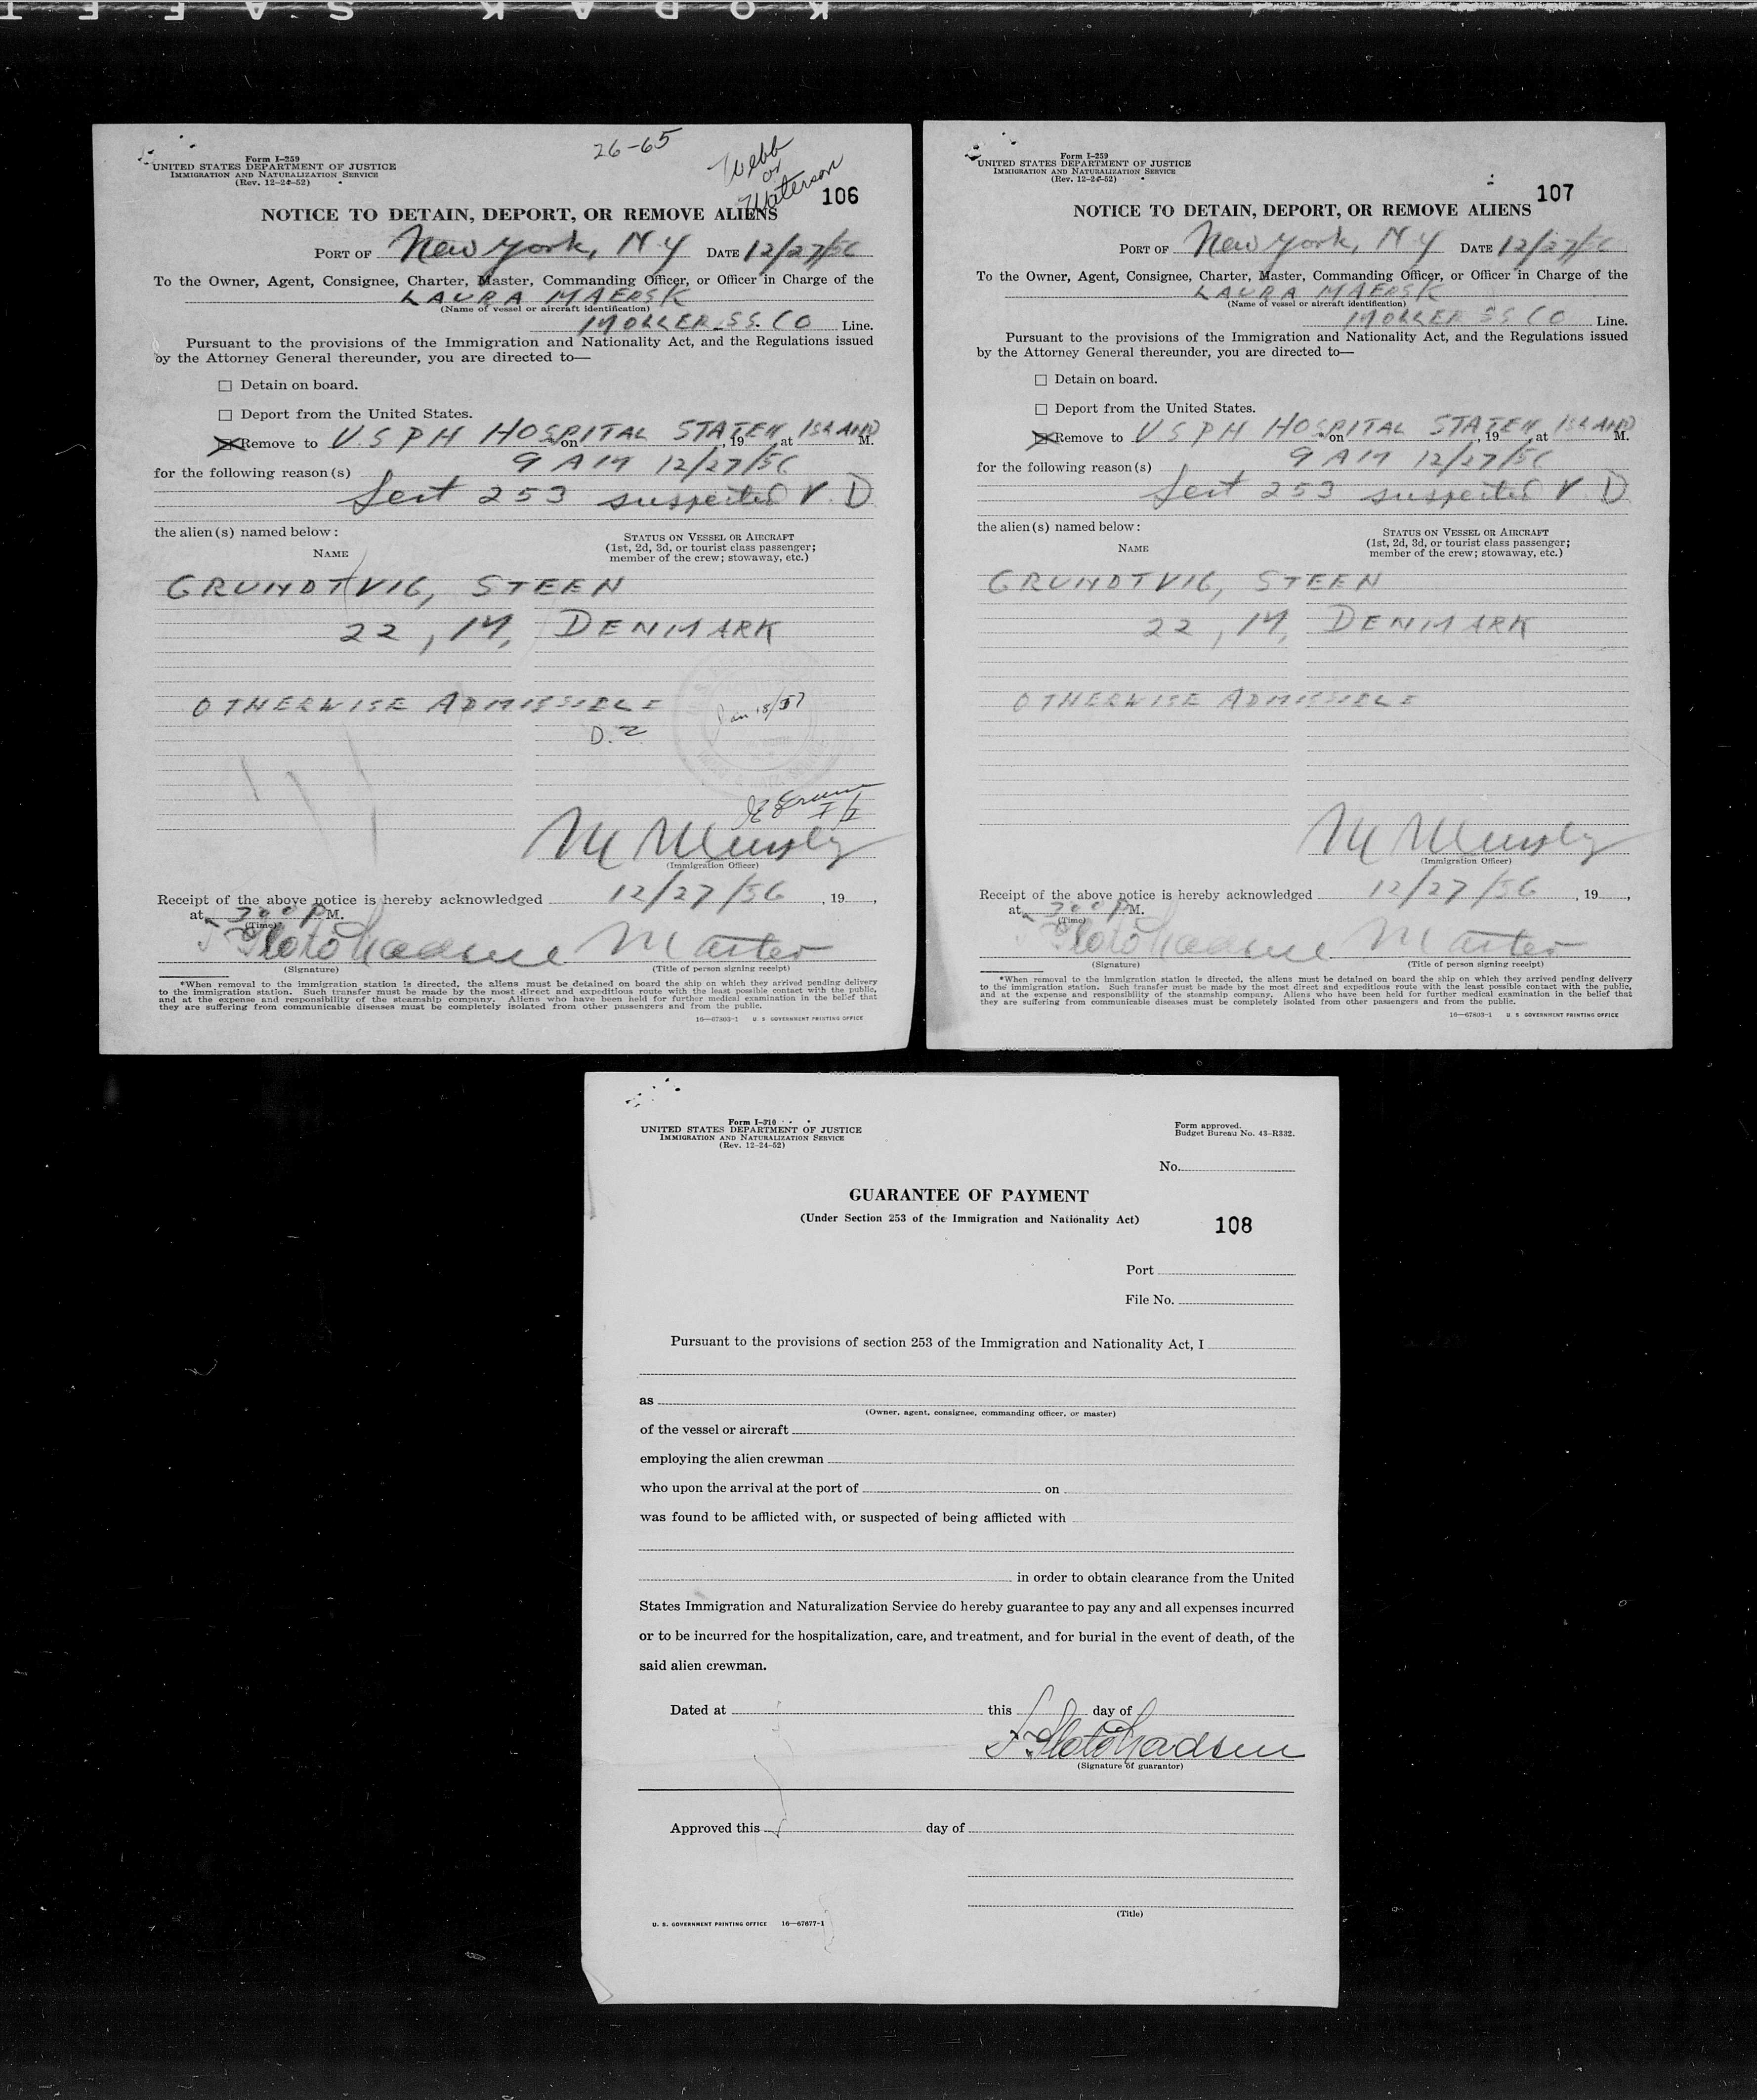 KODAK SAFET
Form I-259
UNITED STATES DEPARTMENT OF JUSTICE
IMMIGRATION AND NATURALIZATION SERVICE
(Rev. 12-24-52)
26-65
Webb
or
Waterson
106
NOTICE TO DETAIN, DEPORT, OR REMOVE ALIENS
PORT OF New York, N Y DATE 12/27/56
To the Owner, Agent, Consignee, Charter, Master, Commanding Officer, or Officer in Charge of the
LAURA MAERSK
(Name of vessel or aircraft identification)
MOLLER SS. CO Line.
Pursuant to the provisions of the Immigration and Nationality Act, and the Regulations issued
by the Attorney General thereunder, you are directed to—
☐ Detain on board.
☐ Deport from the United States.
☒ Remove to USPH HOSPITAL STATEN ISLAND on , 19 at M.
9 AM 12/27/56
for the following reason(s)
Sect 253 suspected V. D
the alien(s) named below:
NAME
STATUS ON VESSEL OR AIRCRAFT
(1st, 2d, 3d, or tourist class passenger;
member of the crew; stowaway, etc.)
GRUNDTVIG, STEEN
22, M, DENMARK
OTHERWISE ADMISSIBLE
Jan 18/57
D. 2
M Munsly
(Immigration Officer)
Receipt of the above notice is hereby acknowledged 12/27/56, 19 ,
at 300 P M.
(Time)
Master
(Signature) (Title of person signing receipt)
*When removal to the immigration station is directed, the aliens must be detained on board the ship on which they arrived pending delivery
to the immigration station. Such transfer must be made by the most direct and expeditious route with the least possible contact with the public,
and at the expense and responsibility of the steamship company. Aliens who have been held for further medical examination in the belief that
they are suffering from communicable diseases must be completely isolated from other passengers and from the public.
16—67803-1 U. S. GOVERNMENT PRINTING OFFICE
Form I-259
UNITED STATES DEPARTMENT OF JUSTICE
IMMIGRATION AND NATURALIZATION SERVICE
(Rev. 12-24-52)
107
NOTICE TO DETAIN, DEPORT, OR REMOVE ALIENS
PORT OF New York, N Y DATE 12/27/56
To the Owner, Agent, Consignee, Charter, Master, Commanding Officer, or Officer in Charge of the
LAURA MAERSK
(Name of vessel or aircraft identification)
MOLLER SS CO Line.
Pursuant to the provisions of the Immigration and Nationality Act, and the Regulations issued
by the Attorney General thereunder, you are directed to—
☐ Detain on board.
☐ Deport from the United States.
☒ Remove to USPH HOSPITAL STATEN ISLAND on , 19 at M.
9 AM 12/27/56
for the following reason(s)
Sect 253 suspected V. D
the alien(s) named below:
NAME
STATUS ON VESSEL OR AIRCRAFT
(1st, 2d, 3d, or tourist class passenger;
member of the crew; stowaway, etc.)
GRUNDTVIG, STEEN
22, M, DENMARK
OTHERWISE ADMISSIBLE
M Munsly
(Immigration Officer)
Receipt of the above notice is hereby acknowledged 12/27/56, 19 ,
at 300 P M.
(Time)
Master
(Signature) (Title of person signing receipt)
*When removal to the immigration station is directed, the aliens must be detained on board the ship on which they arrived pending delivery
to the immigration station. Such transfer must be made by the most direct and expeditious route with the least possible contact with the public,
and at the expense and responsibility of the steamship company. Aliens who have been held for further medical examination in the belief that
they are suffering from communicable diseases must be completely isolated from other passengers and from the public.
16—67803-1 U. S. GOVERNMENT PRINTING OFFICE
Form I-310
UNITED STATES DEPARTMENT OF JUSTICE
IMMIGRATION AND NATURALIZATION SERVICE
(Rev. 12-24-52)
Form approved.
Budget Bureau No. 43-R332.
No.
GUARANTEE OF PAYMENT
(Under Section 253 of the Immigration and Nationality Act)
108
Port
File No.
Pursuant to the provisions of section 253 of the Immigration and Nationality Act, I
as
(Owner, agent, consignee, commanding officer, or master)
of the vessel or aircraft
employing the alien crewman
who upon the arrival at the port of on
was found to be afflicted with, or suspected of being afflicted with
in order to obtain clearance from the United
States Immigration and Naturalization Service do hereby guarantee to pay any and all expenses incurred
or to be incurred for the hospitalization, care, and treatment, and for burial in the event of death, of the
said alien crewman.
Dated at this day of
(Signature of guarantor)
Approved this day of
(Title)
U. S. GOVERNMENT PRINTING OFFICE 16—67677-1